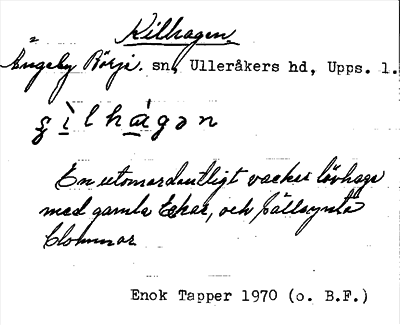 Kilhagen.
Ängeby Börje. sn, Ulleråkers hd, Upps. l.
ʂìlhágən
En utomordentligt vacker lövhage
med gamla Ekar, och sällsynta
blommor
Enok Tapper 1970 (o. B.F.)